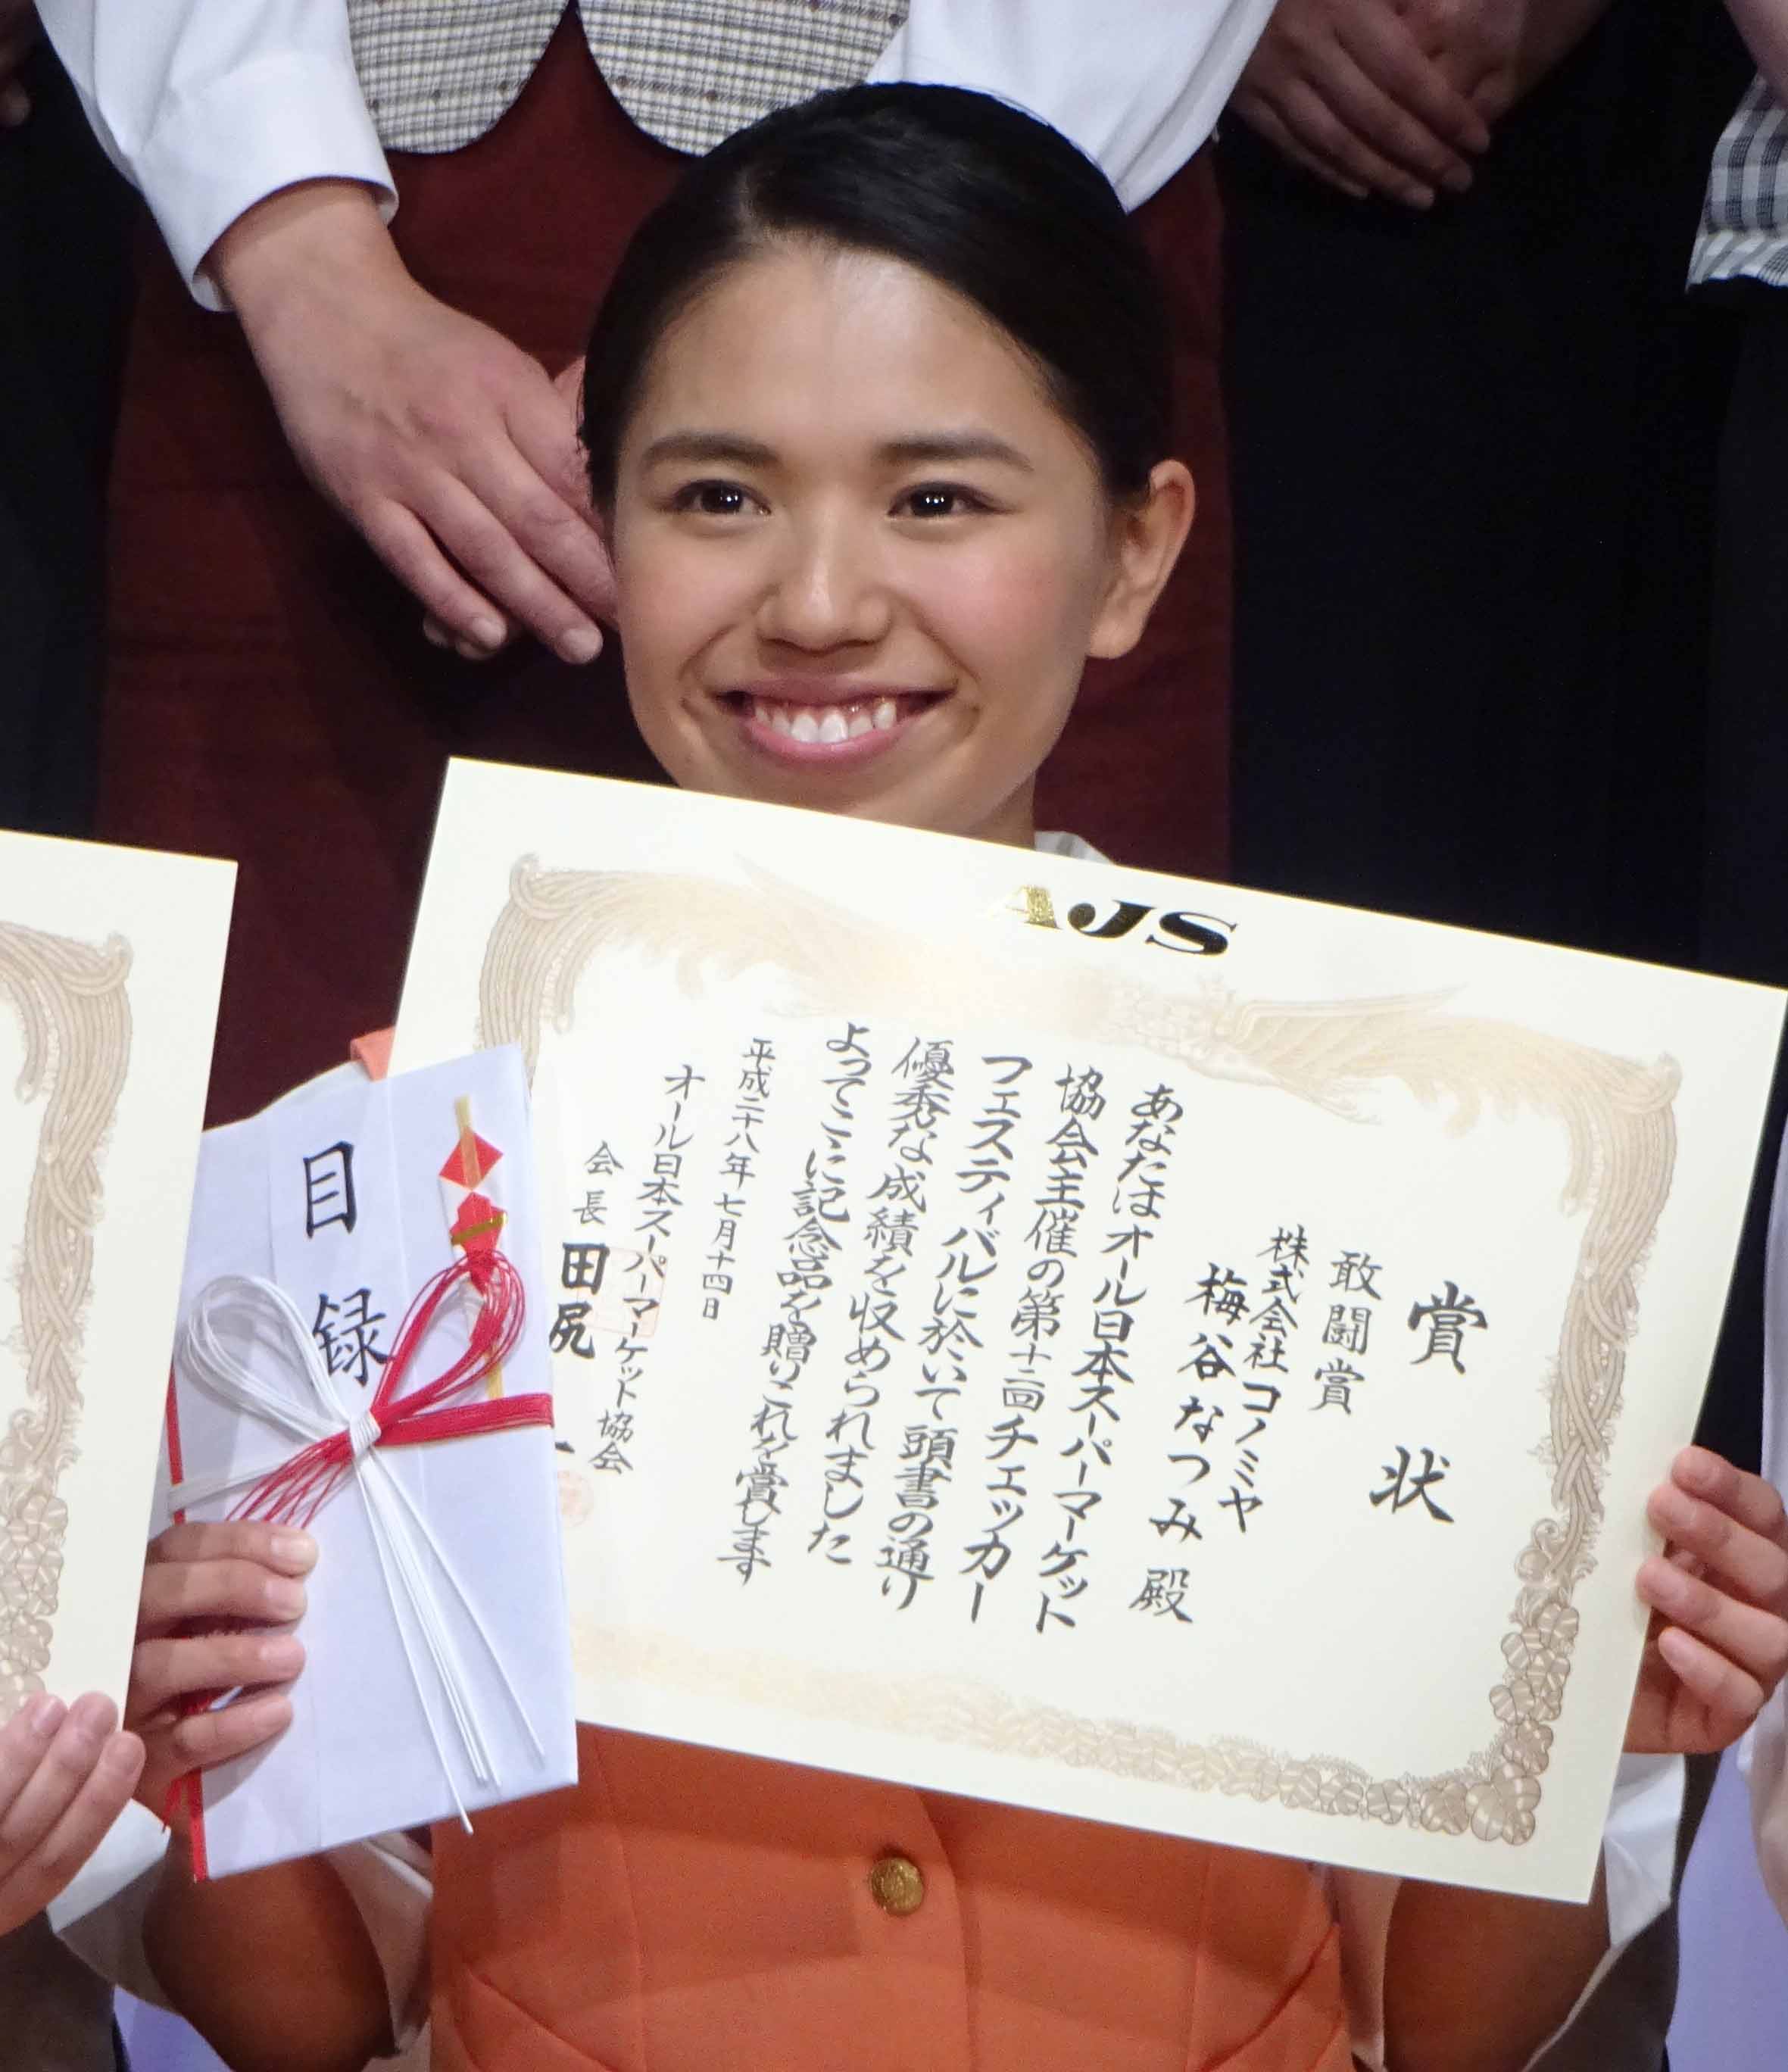 AJS
賞状
敢闘賞
株式会社コノミヤ
梅谷なつみ殿
あなたはオール日本スーパーマーケット
協会主催の第十二回チェッカー
フェスティバルに於いて頭書の通り
優秀な成績を収められました
よってここに記念品を贈りこれを賞します
平成二十八年七月十四日
オール日本スーパーマーケット協会
会長 田尻 一
目録